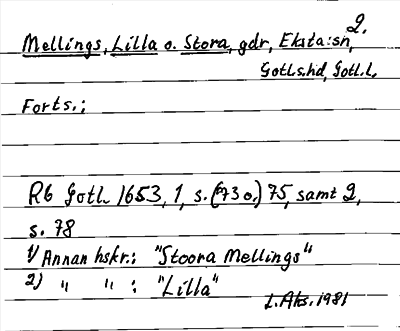 2.
Mellings, Lilla o. Stora, gdr, Eksta:sn,
Gotl.s.hd, Gotl.l.
Forts.:
Rb Gotl. 1653, 1, s. (73 o.) 75, samt 2,
s. 78
1) Annan hskr.: "Stoora Mellings"
2) " " : "Lilla"
1981